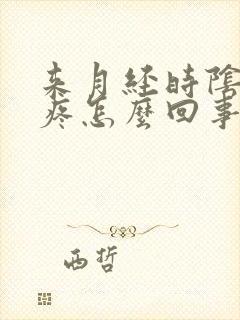 来月经時陰
疼怎麼回事
西哲